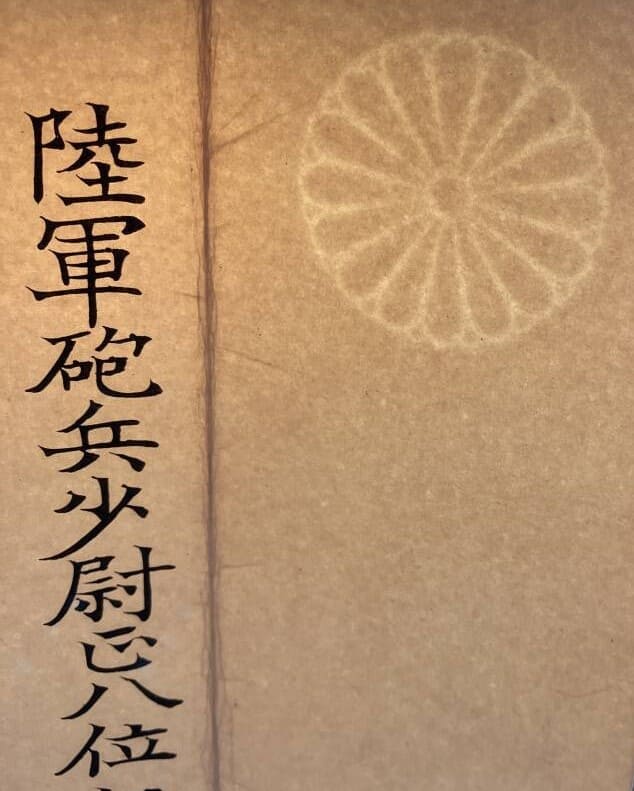 陸軍砲兵少尉正八位